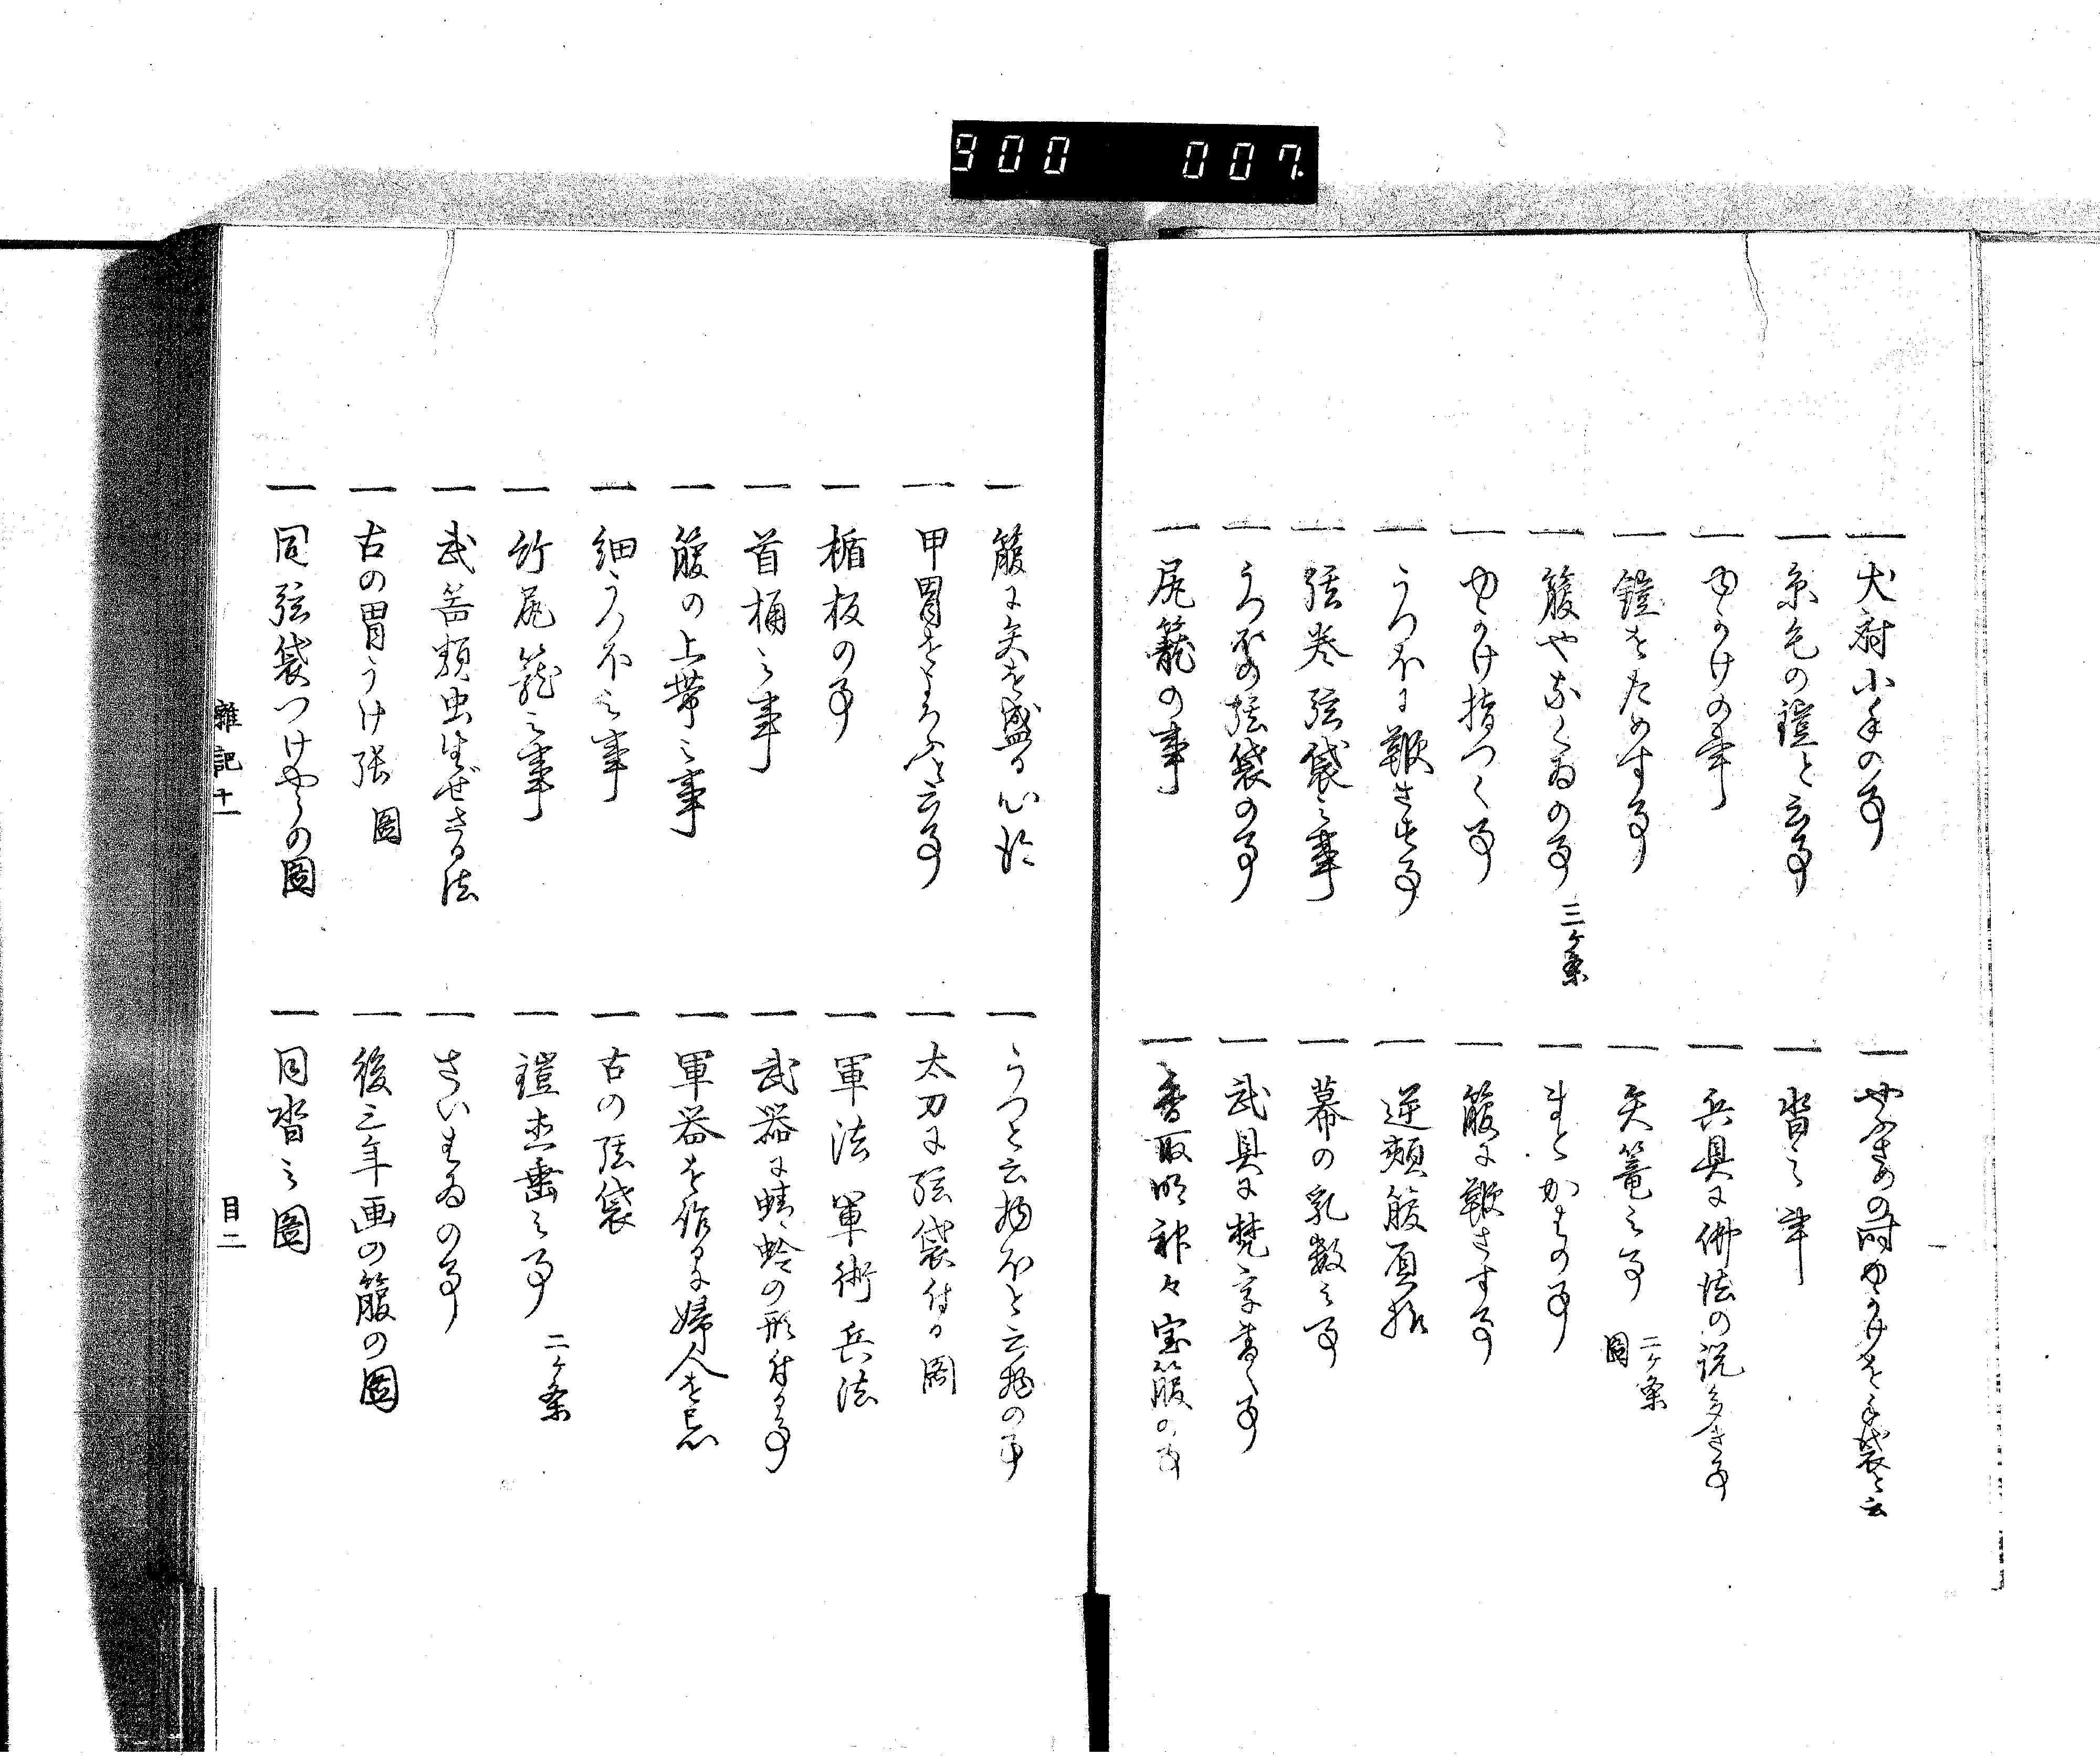 900 007.
一 犬射小手の事
一 糸毛の鎧と云事
一 ゆかけの事
一 鎧をためす事
一 箙やなくゐの事 三ケ条
一 ゆかけ指つく事
一 うつほに鞭さす事
一 弦巻弦袋之事
一 うつほの弦袋の事
一 尻籠の事
一 やふさめの時ゆかけを手袋と云
一 沓之事
一 兵具に佛法の説多き事
一 矢篭之事 二ケ条 圖
一 まとかはの事
一 箙に鞭さす事
一 逆頬箙
一 幕の乳数之事
一 武具に梵字書く事
一 香取明神々宝箙の事
一 箙に矢を盛る心得
一 甲冑をよろふと云事
一 楯板の事
一 首桶之事
一 箙の上帯之事
一 細うつほ之事
一 竹尻籠之事
一 武器類虫生ぜざる法
一 古の冑うけ張 圖
一 同弦袋つけやうの圖
一 うつと云物ほと云物の事
一 太刀に弦袋付る圖
一 軍法軍術兵法
一 武器に蜻蛉の形付る事
一 軍器を作るに婦人を忌
一 古の弦袋
一 鎧直垂之事 二ケ条
一 さいはゐの事
一 後三年画の箙の圖
一 同沓之圖
雜記十一
目二